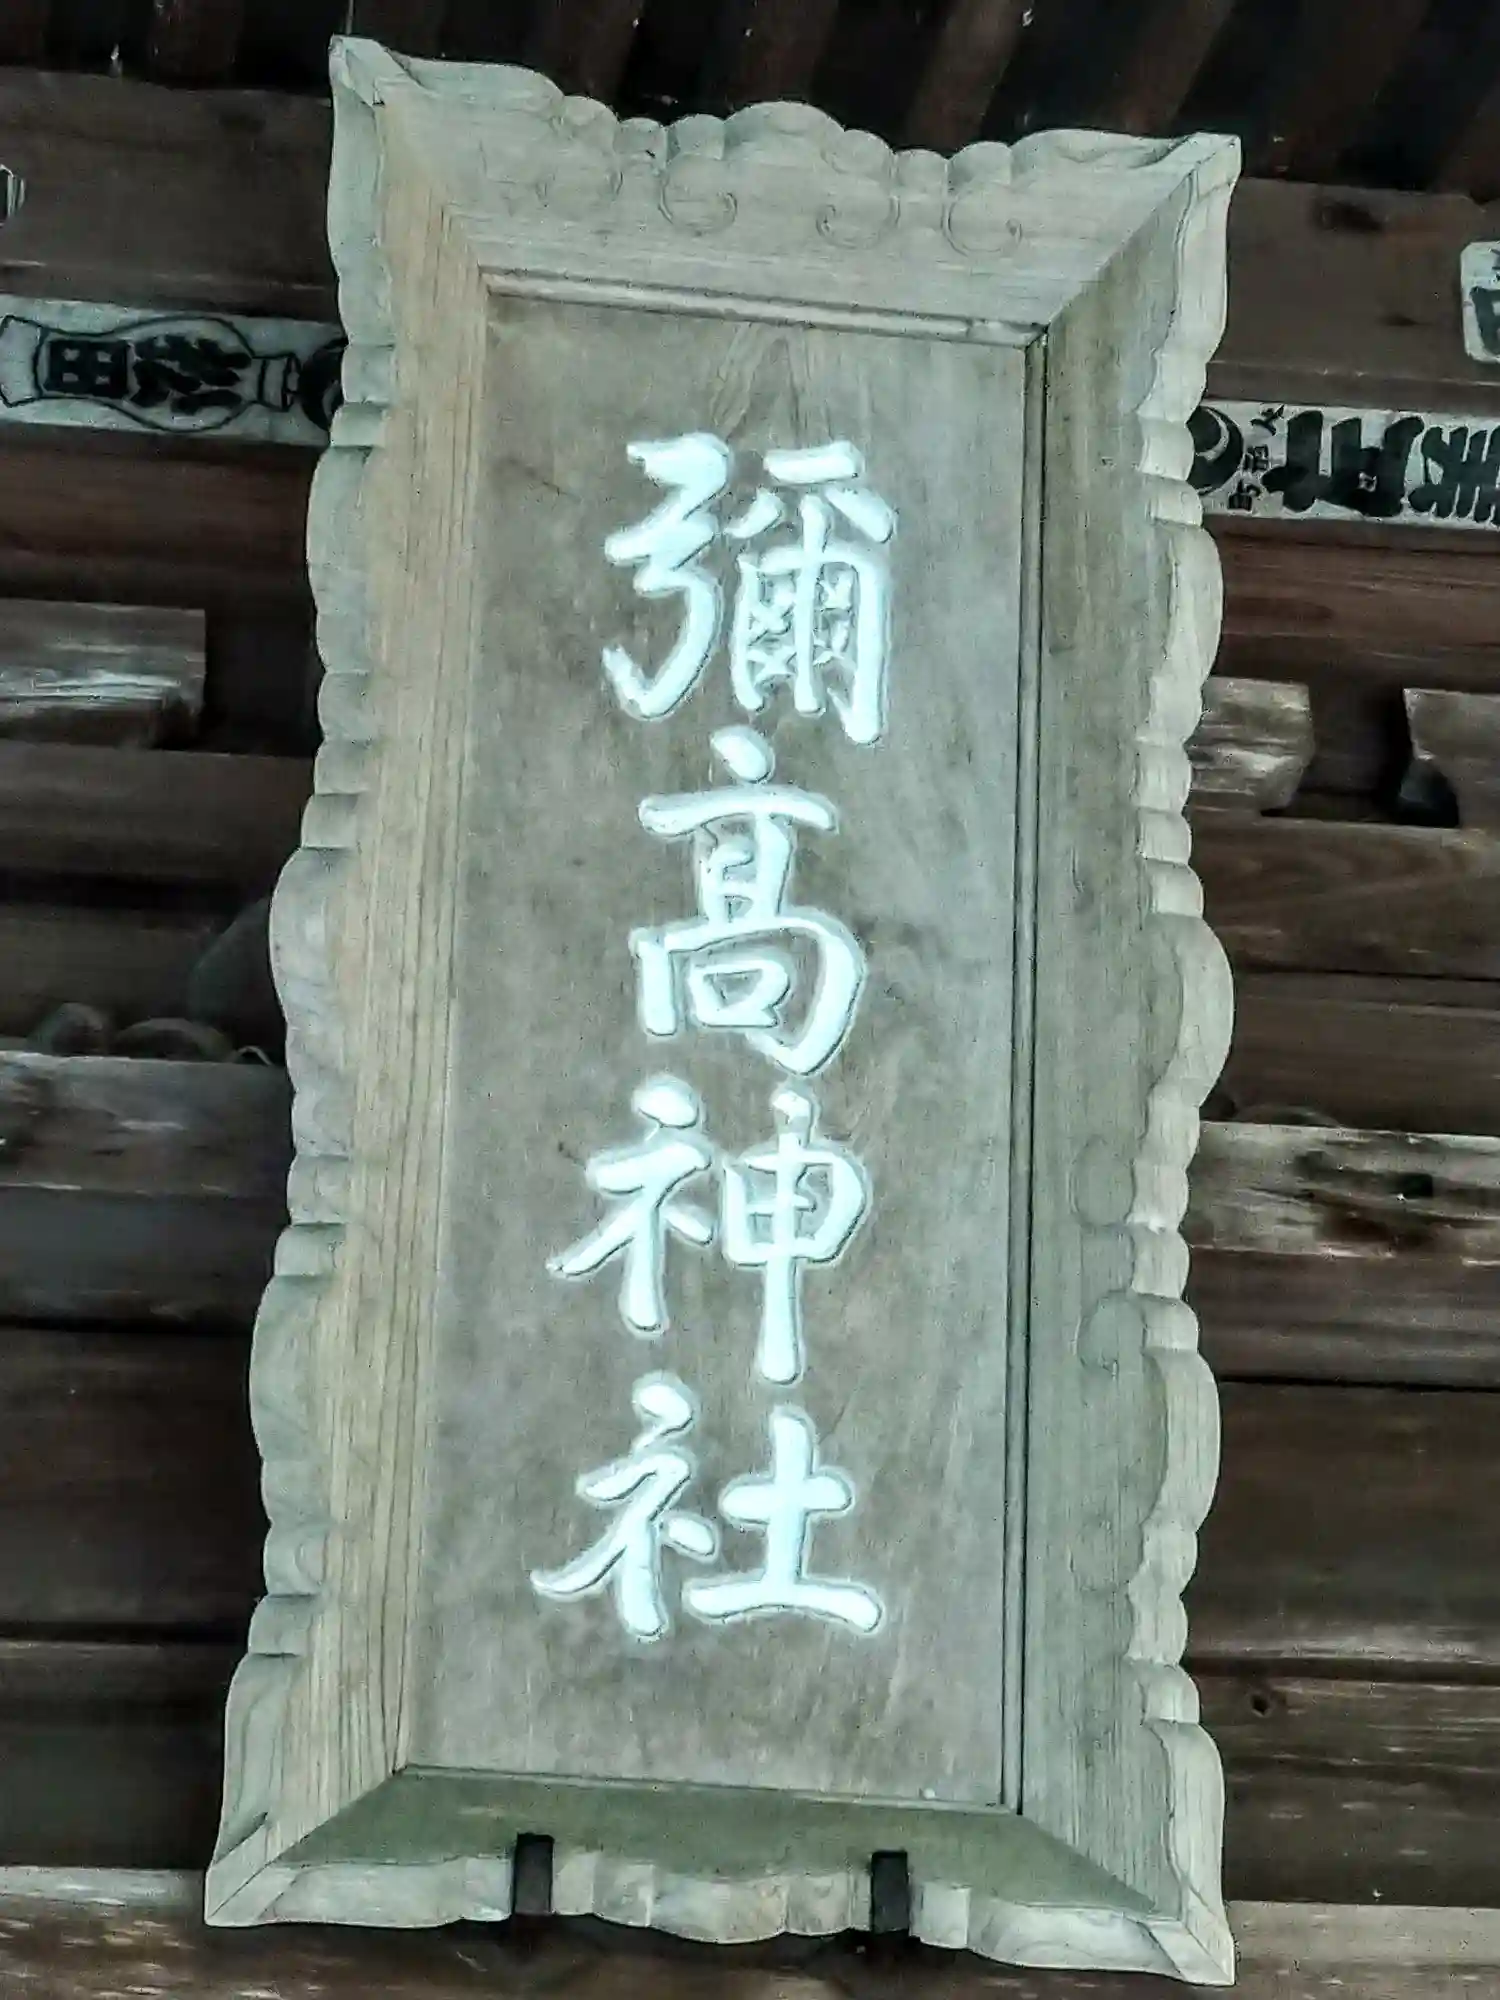 彌高神社